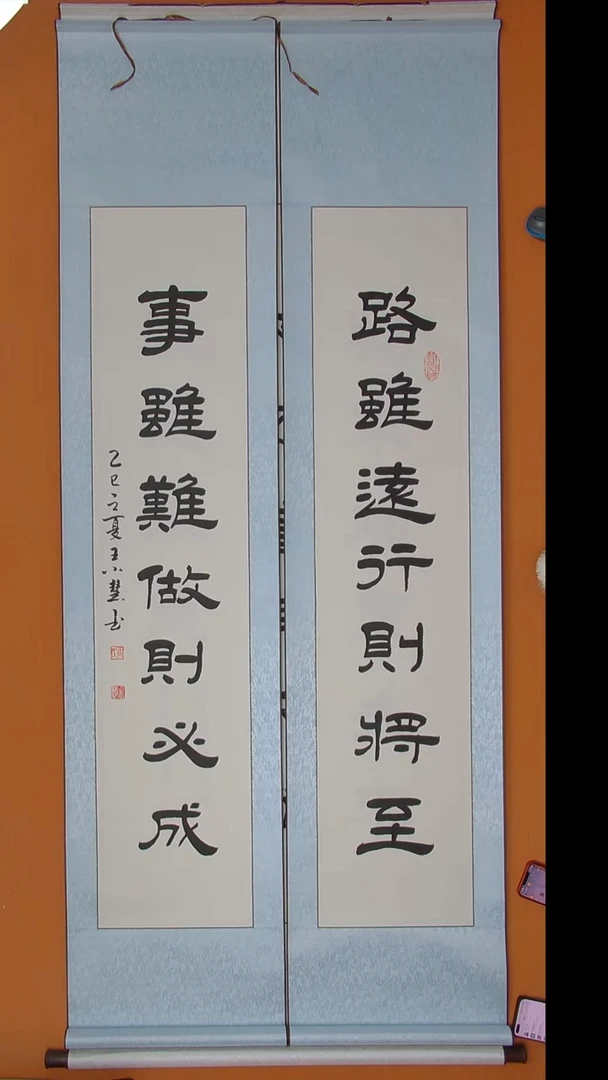 路雖遠行則將至
事雖難做則必成
乙巳之夏王小慧書